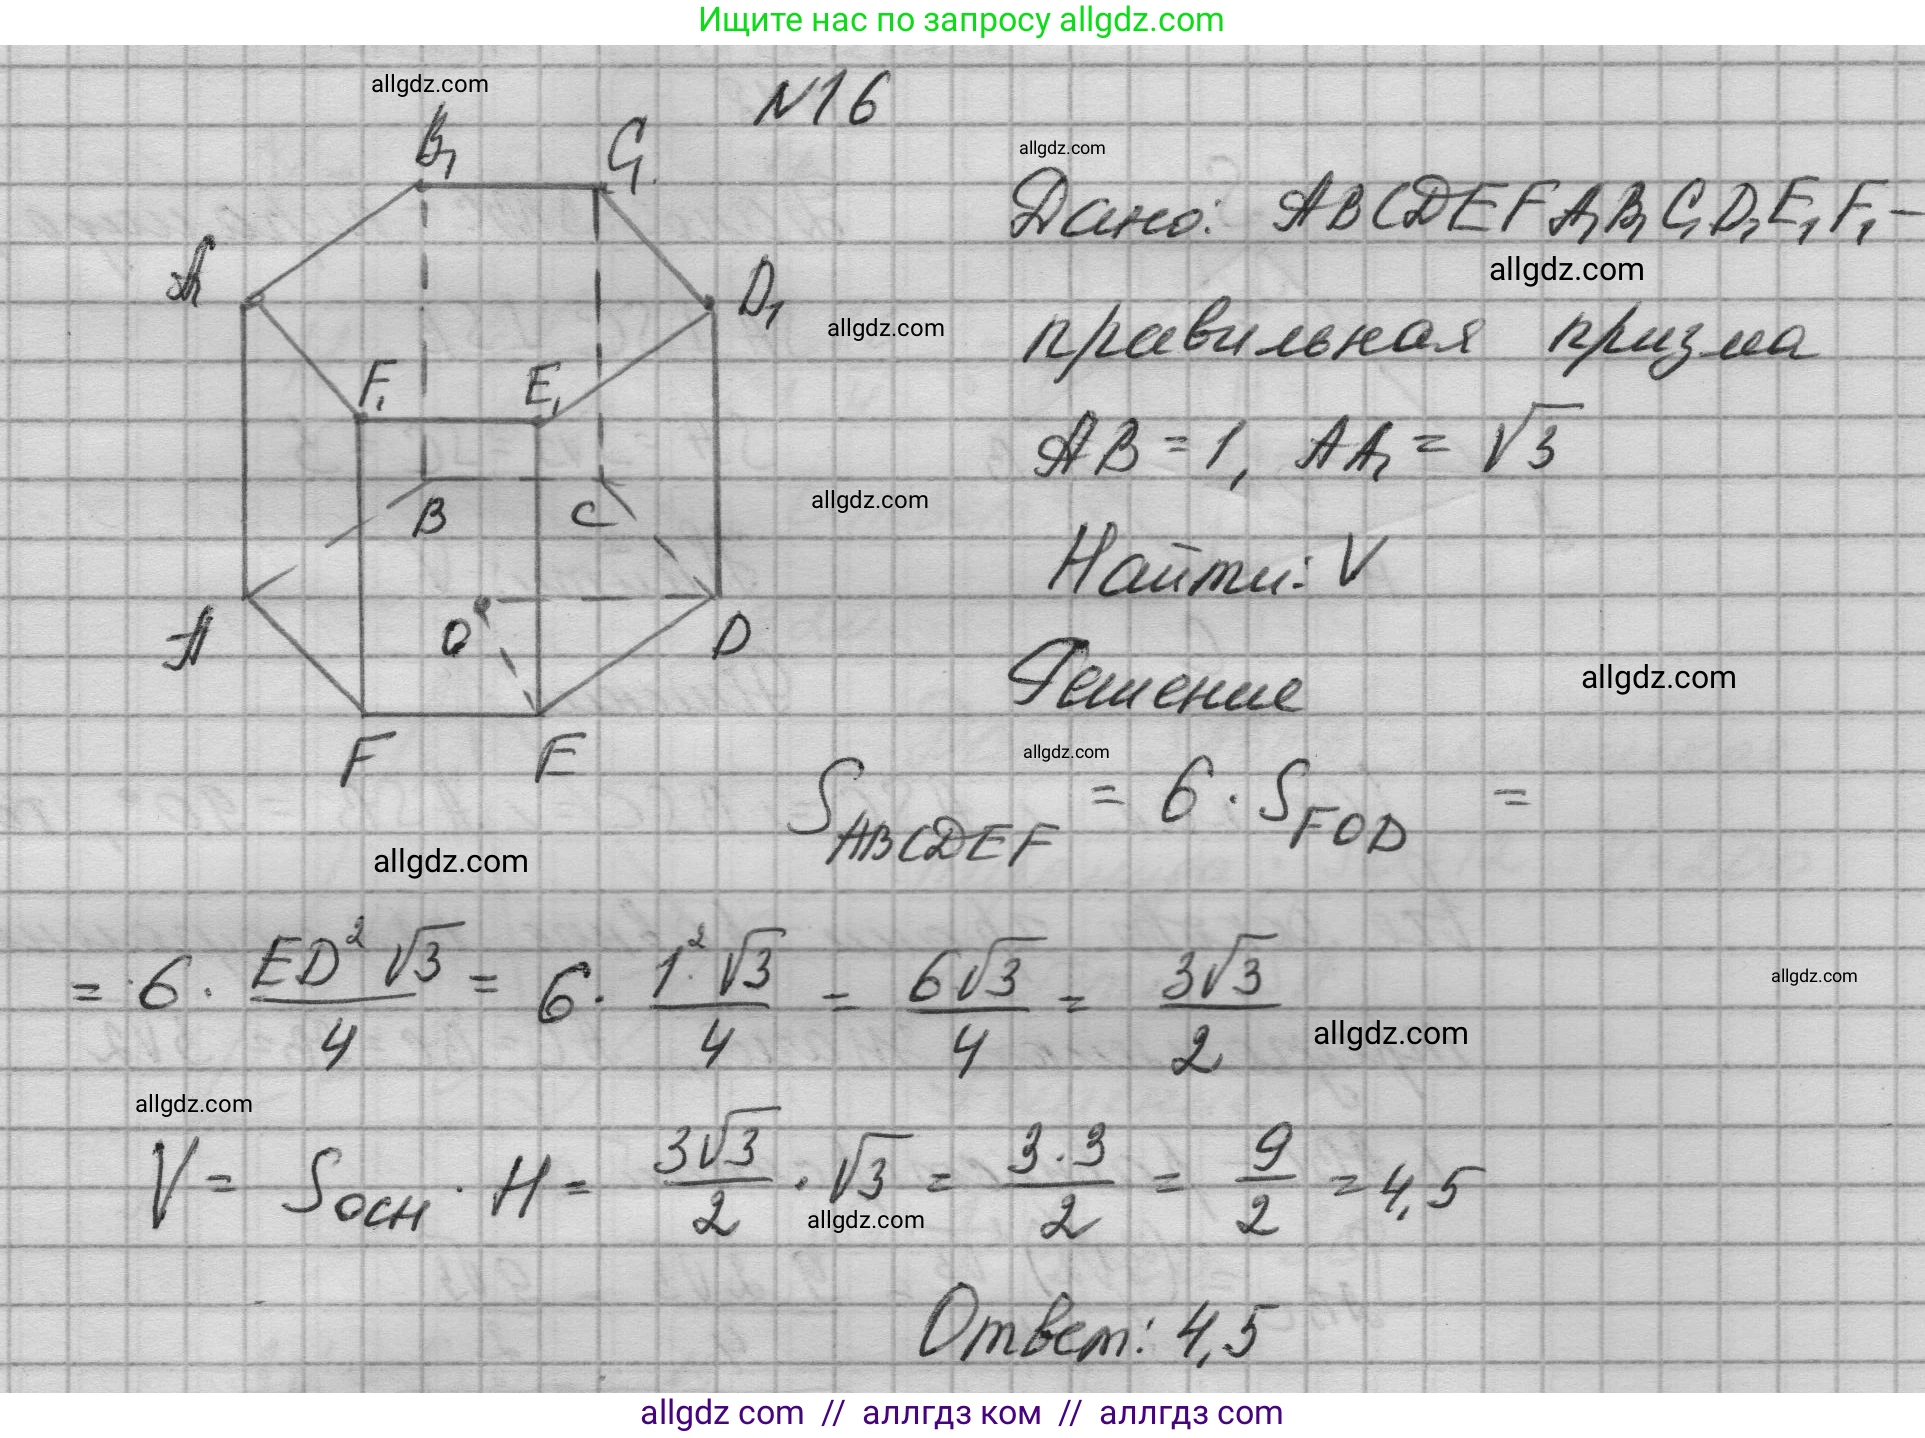 Ищите нас по запросу allgdz.com
allgdz.com
N16
B₁
C₁
allgdz.com
Дано: ABCDEFA₁B₁C₁D₁E₁F₁ –
allgdz.com
A₁
D₁
allgdz.com
правильная призма
F₁
E₁
AB = 1, AA₁ = √3
allgdz.com
B
C
Найти: V
O
A
D
Решение
allgdz.com
F
E
allgdz.com
S_ABCDEF = 6 · S_FOD =
allgdz.com
= 6 · ED²√3/4 = 6 · 1²·√3/4 = 6√3/4 = 3√3/2
allgdz.com
allgdz.com
allgdz.com
V = Sосн · H = 3√3/2 · √3 = 3·3/2 = 9/2 = 4,5
allgdz.com
Ответ: 4,5
allgdz com // аллгдз ком // аллгдз com